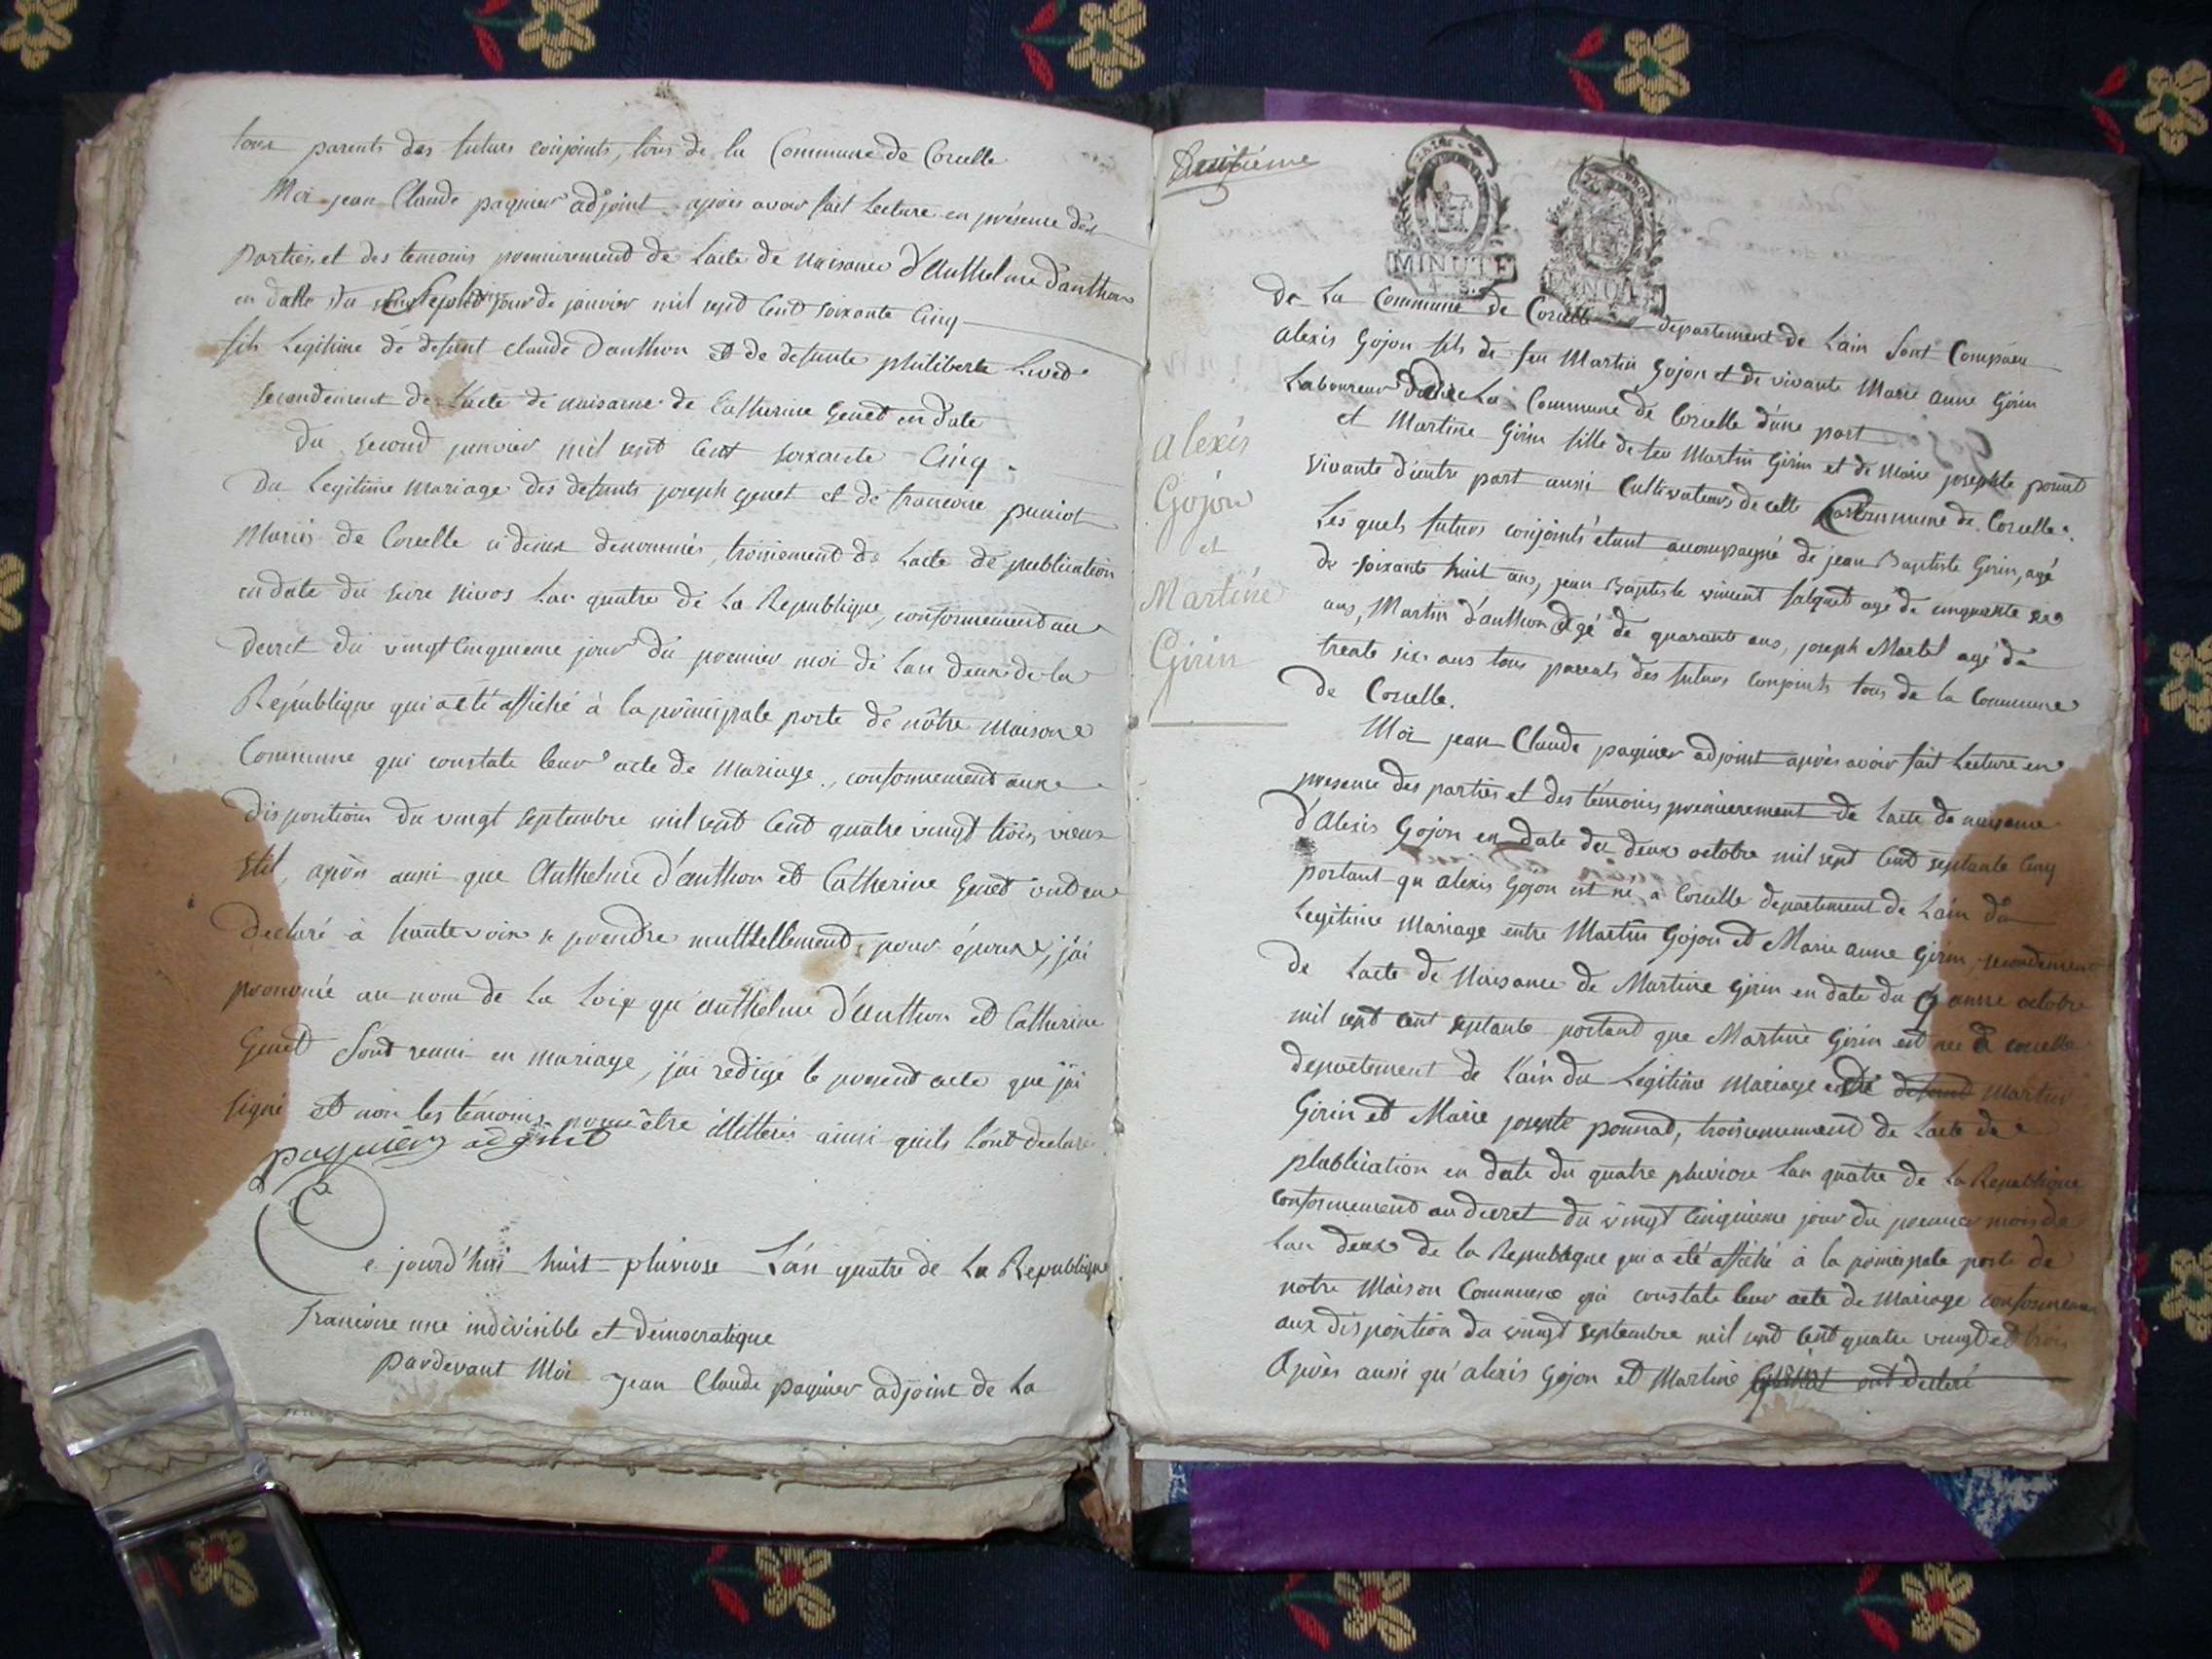 tous parents des futurs conjoints, tous de la Commune de Corcelle
Moi jean Claude paquier adjoint après avoir fait Lecture en présence des
Parties, et des temoins premierement de Lacte de naisance d'Anthelme d'anthon
en datte du jour de janvier mil sept Cent soixante Cinq
fils Legitime de defunt claude Danthon et de defunte philiberte
secondement de Lacte de naisance de Catherine Genet en date
du second janvier mil sept Cent soixante Cinq
Du Legitime mariage des defunts joseph genet et de francoise
Mariés de Corcelle denommés, troisiement de Lacte de publication
en date du seize nivos Lan quatre de La Republique, conformement au
decret du vingt Cinquieme jour du premier moi de Lan deux de la
République qui a été affiché à la principale porte de nôtre maison
Commune qui constate leur acte de mariage, conformement aux
dispositions du vingt septembre mil sept Cent quatre vingt trois, vieux
stil, après aussi que Anthelme d'anthon et Catherine Genet ont
declaré à haute voix se prendre muttellement pour épouse, j'ai
prononcé au nom de La Loix qu'anthelme d'anthon et Catherine
Genet sont reuni en mariage, j'ai redigé le present acte que j'ai
signé et non les témoins pour être illitterés ainsi quils l'ont declaré
paquier adjoint
Ce jourd'hui huit pluviose L'an quatre de La Republique
francoise une indivisible et démocratique
pardevant Moi Jean Claude paquier adjoint de La
MINUTE
MINUTE
De La Commune de Corcelle departement de Lain sont Comparu
Alexis Gojon fils de feu Martin Gojon et de vivante Marie anne Girin
Laboureur de La Commune de Corcelle d'une part
et Martine Girin fille de feu Martin Girin et de Marie josephte ponnat
vivante d'autre part aussi Cultivateurs de cette Commune de Corcelle.
Alexis
Gojon
et
Martine
Girin
Les quels futurs conjoints étant accompagné de jean Baptiste Girin, agé
de soixante huit ans, jean Baptiste vincent agé de cinquante six
ans, Martin d'anthon agé de quarante ans, joseph Martel agé de
trente six ans tous parents des futurs conjoints tous de la Commune
de Corcelle.
Moi jean Claude paquier adjoint après avoir fait Lecture en
presence des parties et des témoins premierement de Lacte de naisance
d'Alexis Gojon en date du deux octobre mil sept Cent septante Cinq
portant qu'alexis Gojon est né à Corcelle departement de Lain du
Legitime mariage entre Martin Gojon et Marie anne Girin, secondement
De Lacte de Naisance de Martine Girin en date du octobre
mil sept cent septante portant que Martine Girin est née à corcelle
departement de Lain du Legitime mariage entre defunt Martin
Girin et Marie josephte ponnat, troisiemement de Lacte de
plublication en date du quatre pluviose Lan quatre de La Republique
conformement au decret du vingt Cinquieme jour du premier mois de
Lan deux de la Republique qui a été affiché à la principale porte de
notre Maison Commune qui constate leur acte de Mariage conformement
aux disposition du vingt septembre mil sept Cent quatre vingt et trois
Après aussi qu'alexis Gojon et Martine ont declaré